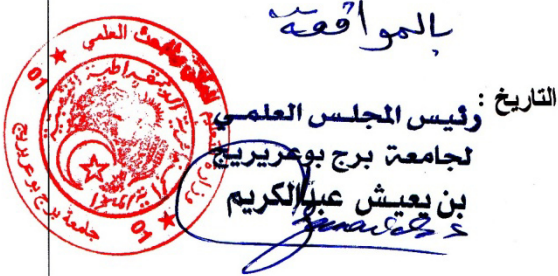 بالموافقة
التاريخ :
رئيس المجلس العلمي
لجامعة برج بوعريريج
بن يعيش عبدالكريم
جامعة برج بوعريريج
01
01